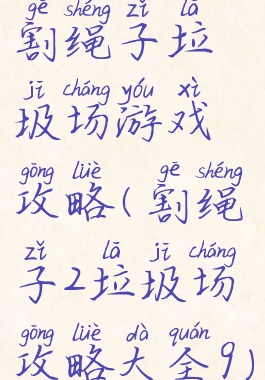 gē shéng zǐ lā
割绳子垃
jī cháng yóu xì
圾场游戏
gōng lüè gē shéng
攻略(割绳
zǐ lā jī cháng
子2垃圾场
gōng lüè dà quán
攻略大全9)